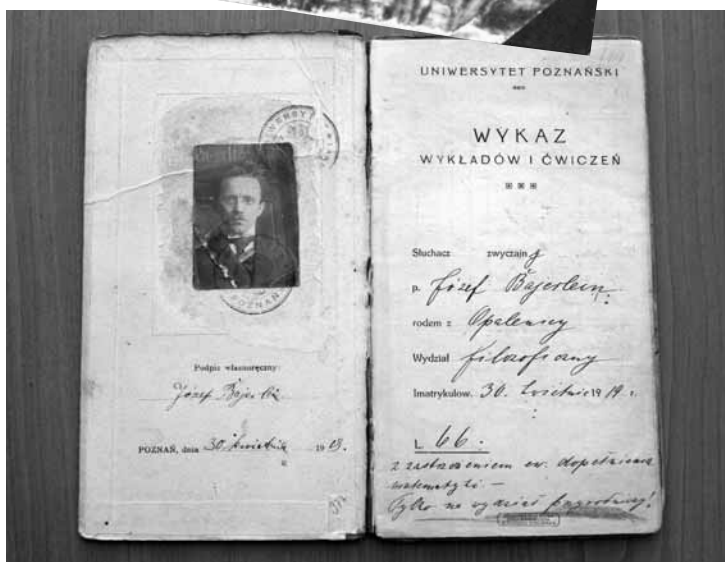 UNIWERSYTET
POZNAŃ
Podpis własnoręczny:
Józef Bajerlein
POZNAŃ, dnia 30. kwietnia 1919.
UNIWERSYTET POZNAŃSKI
WYKAZ
WYKŁADÓW I ĆWICZEŃ
Słuchacz zwyczajny
p. Józef Bajerlein
rodem z Opalenicy
Wydział filozoficzny
Imatrykulow. 30. kwietnia 1919 r.
L. 66.
z zastrzeżeniem ew. dopełnienia
matematyki —
Tylko na wydział